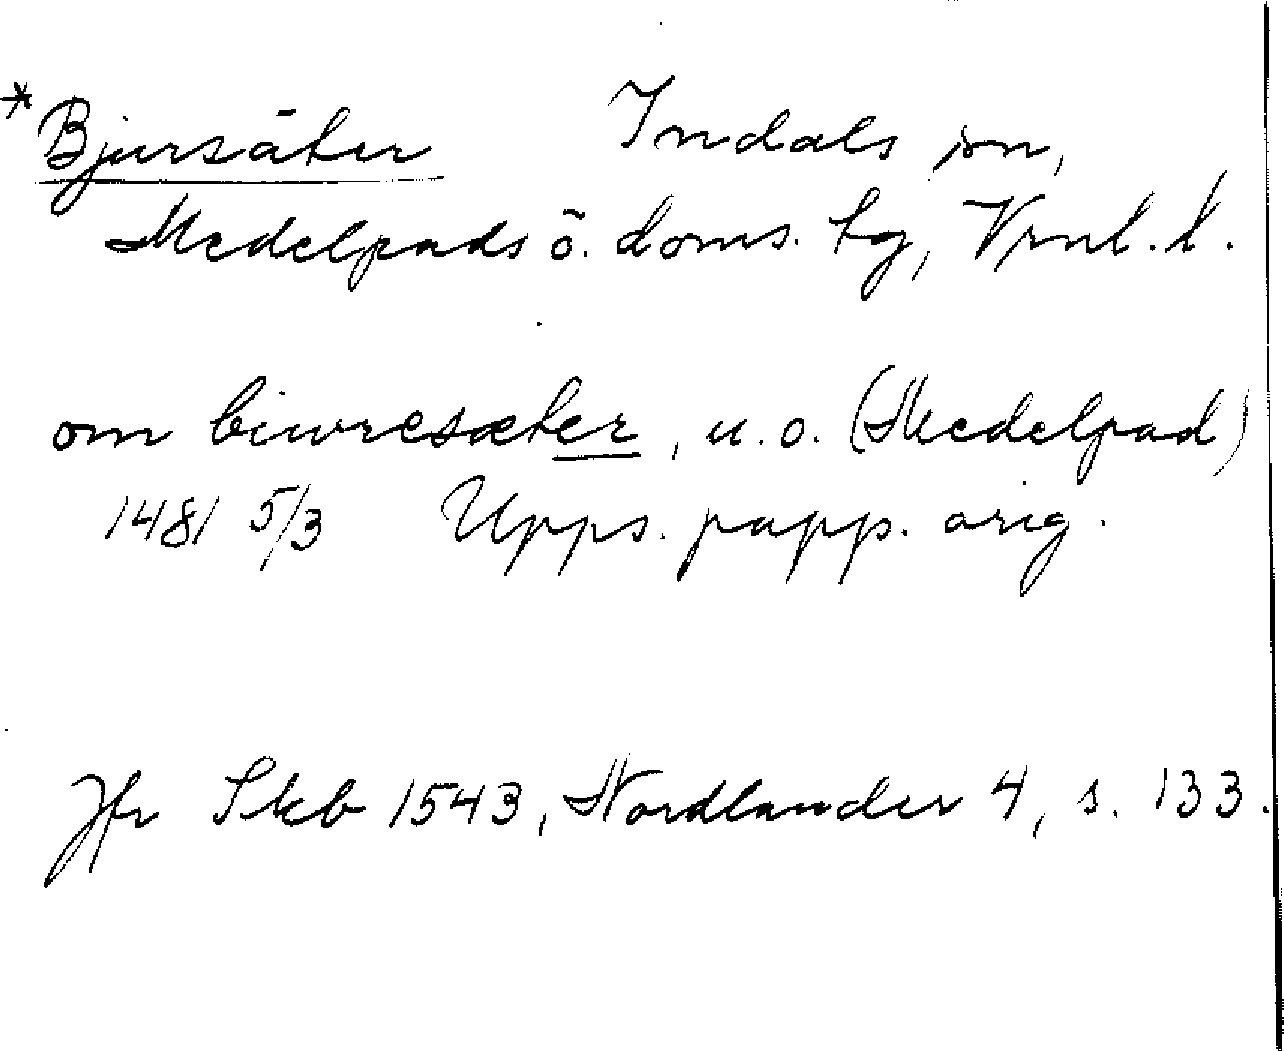 *Bjursäter Indals sn,
Medelpads ö. doms. tg, Vrnl. l.
om biwresæter, u.o. (Medelpad)
1481 5/3 Upps. papp. orig.
Jfr Skb 1543, Nordlander 4, s. 133.